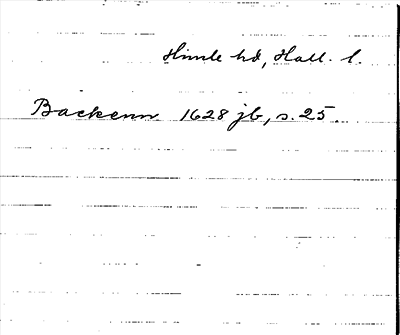 Himle hd, Hall. l.
Backenn 1628 jb, s. 25.